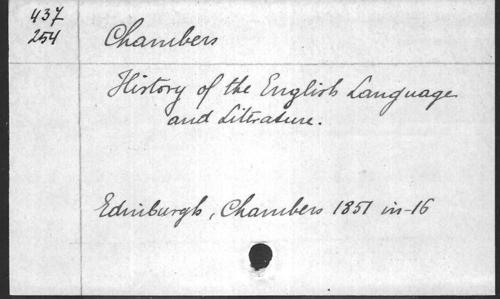 437
254
Chambers
History of the English Language
and Literature.
Edinburgh, Chambers 1851 in-16